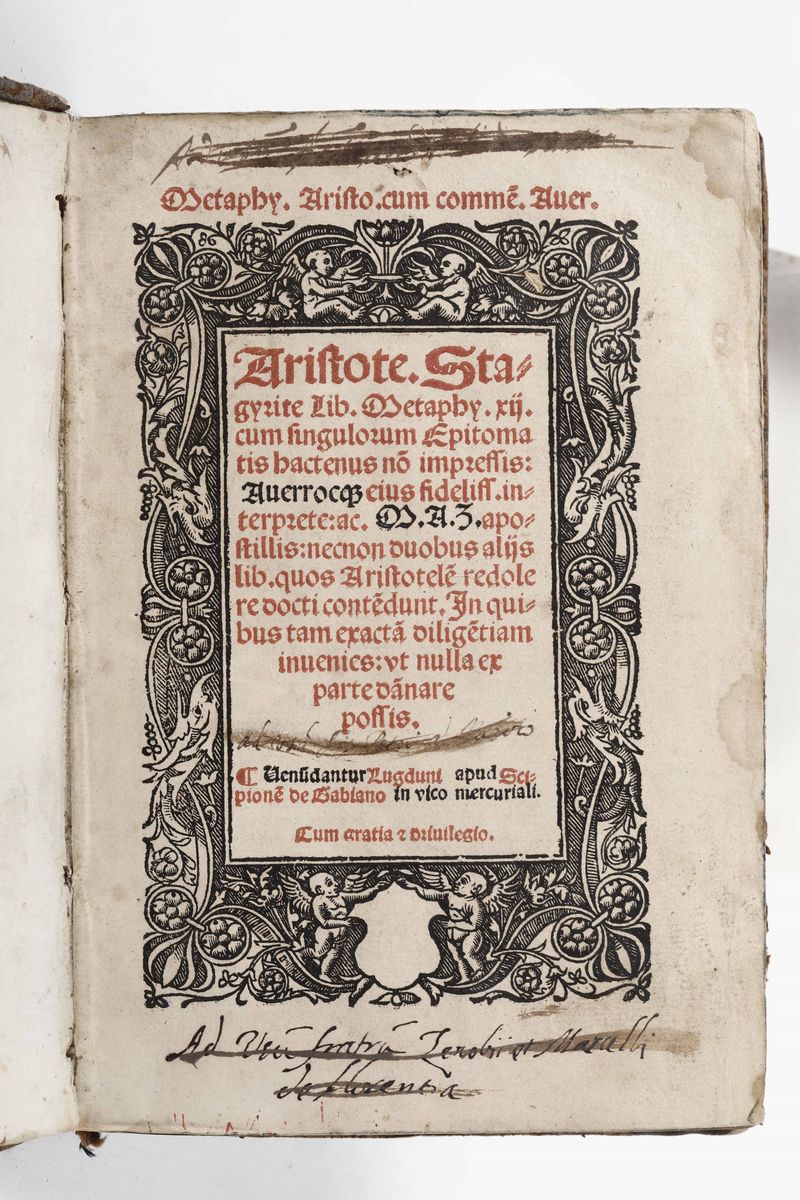 Ad
Metaphy. Aristo.cum commẽ. Auer.
Aristote. Sta⸗
gyrite Lib. Metaphy. xij.
cum singulorum Epitoma
tis hactenus nõ impressis:
Auerrocqꝫ eius fideliss.in⸗
terprete:ac. M.A.Z.apo⸗
stillis:necnon duobus alijs
lib.quos Aristotelẽ redole
re docti contẽdunt. In qui⸗
bus tam exactã diligẽtiam
inuenies:vt nulla ex
parte dãnare
possis.
¶ Uenũdantur Lugduni apud Sci⸗
pionẽ de Gabiano in vico mercuriali.
Cum gratia ⁊ priuilegio.
Ad fratrũ et
de florentia